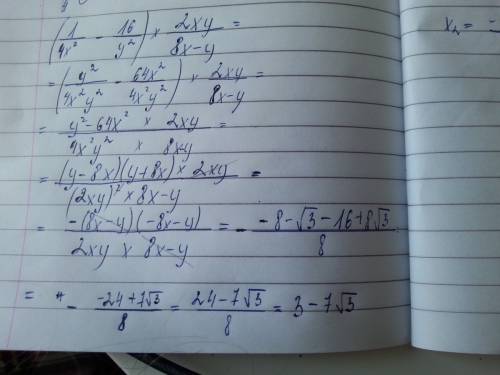 (1/4x² - 16/y²) × 2xy/8x-y =
= (y²/4x²y² - 64x²/4x²y²) × 2xy/8x-y =
= y²-64x² × 2xy / 4x²y² × 8xy =
= (y-8x)(y+8x) × 2xy / (2xy)² × 8x-y =
= -(8x-y)(-8x-y) / 2xy × 8x-y = - -8-√3-16+8√3 / 8
= - -24+7√3 / 8 = 24-7√3 / 8 = 3-7√3
x₂ = =